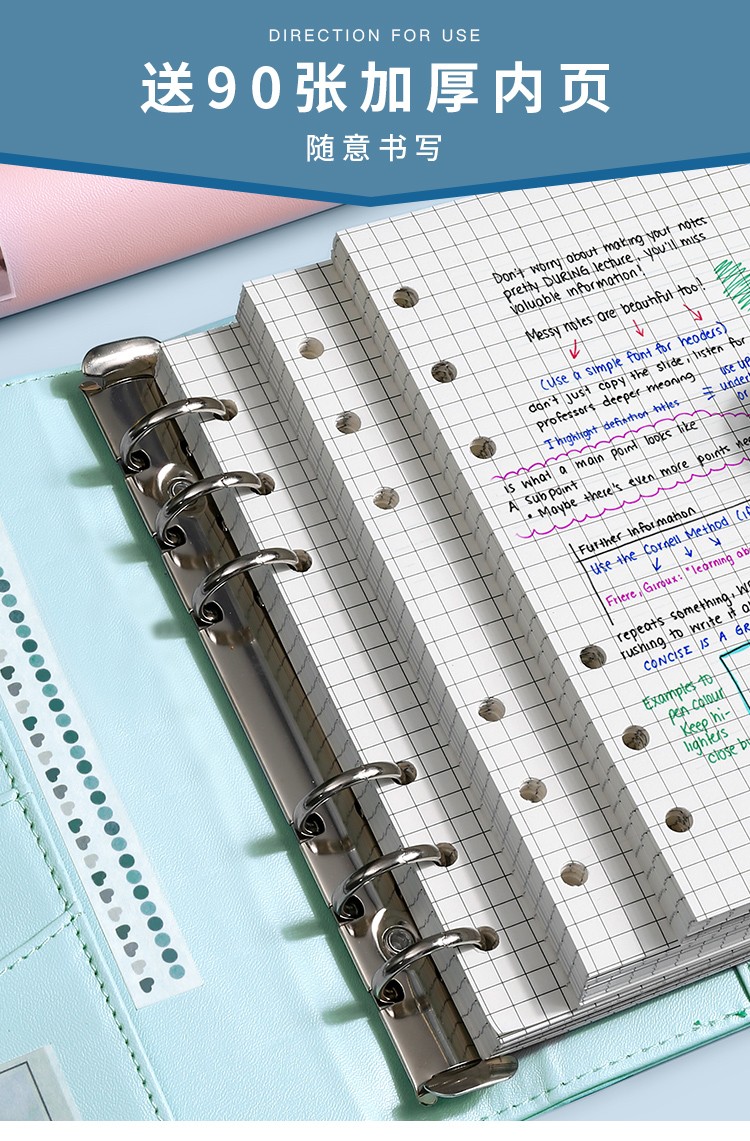 DIRECTION FOR USE
送90张加厚内页
随意书写
Don't worry about making your notes
pretty DURING lecture, you'll miss
valuable information!
Messy notes are beautiful too!
(Use a simple font for headers)
don't just copy the slide, listen for
professors deeper meaning
= use up
under
or
I highlight definition titles
is what a main point looks like
A subpoint
• Maybe there's even more points
Further Information
Use the Cornell Method
Friere, Giroux: "learning
repeats something,
rushing to write it
CONCISE IS A
Examples to
pen colour
Keep hi-
lighters
close